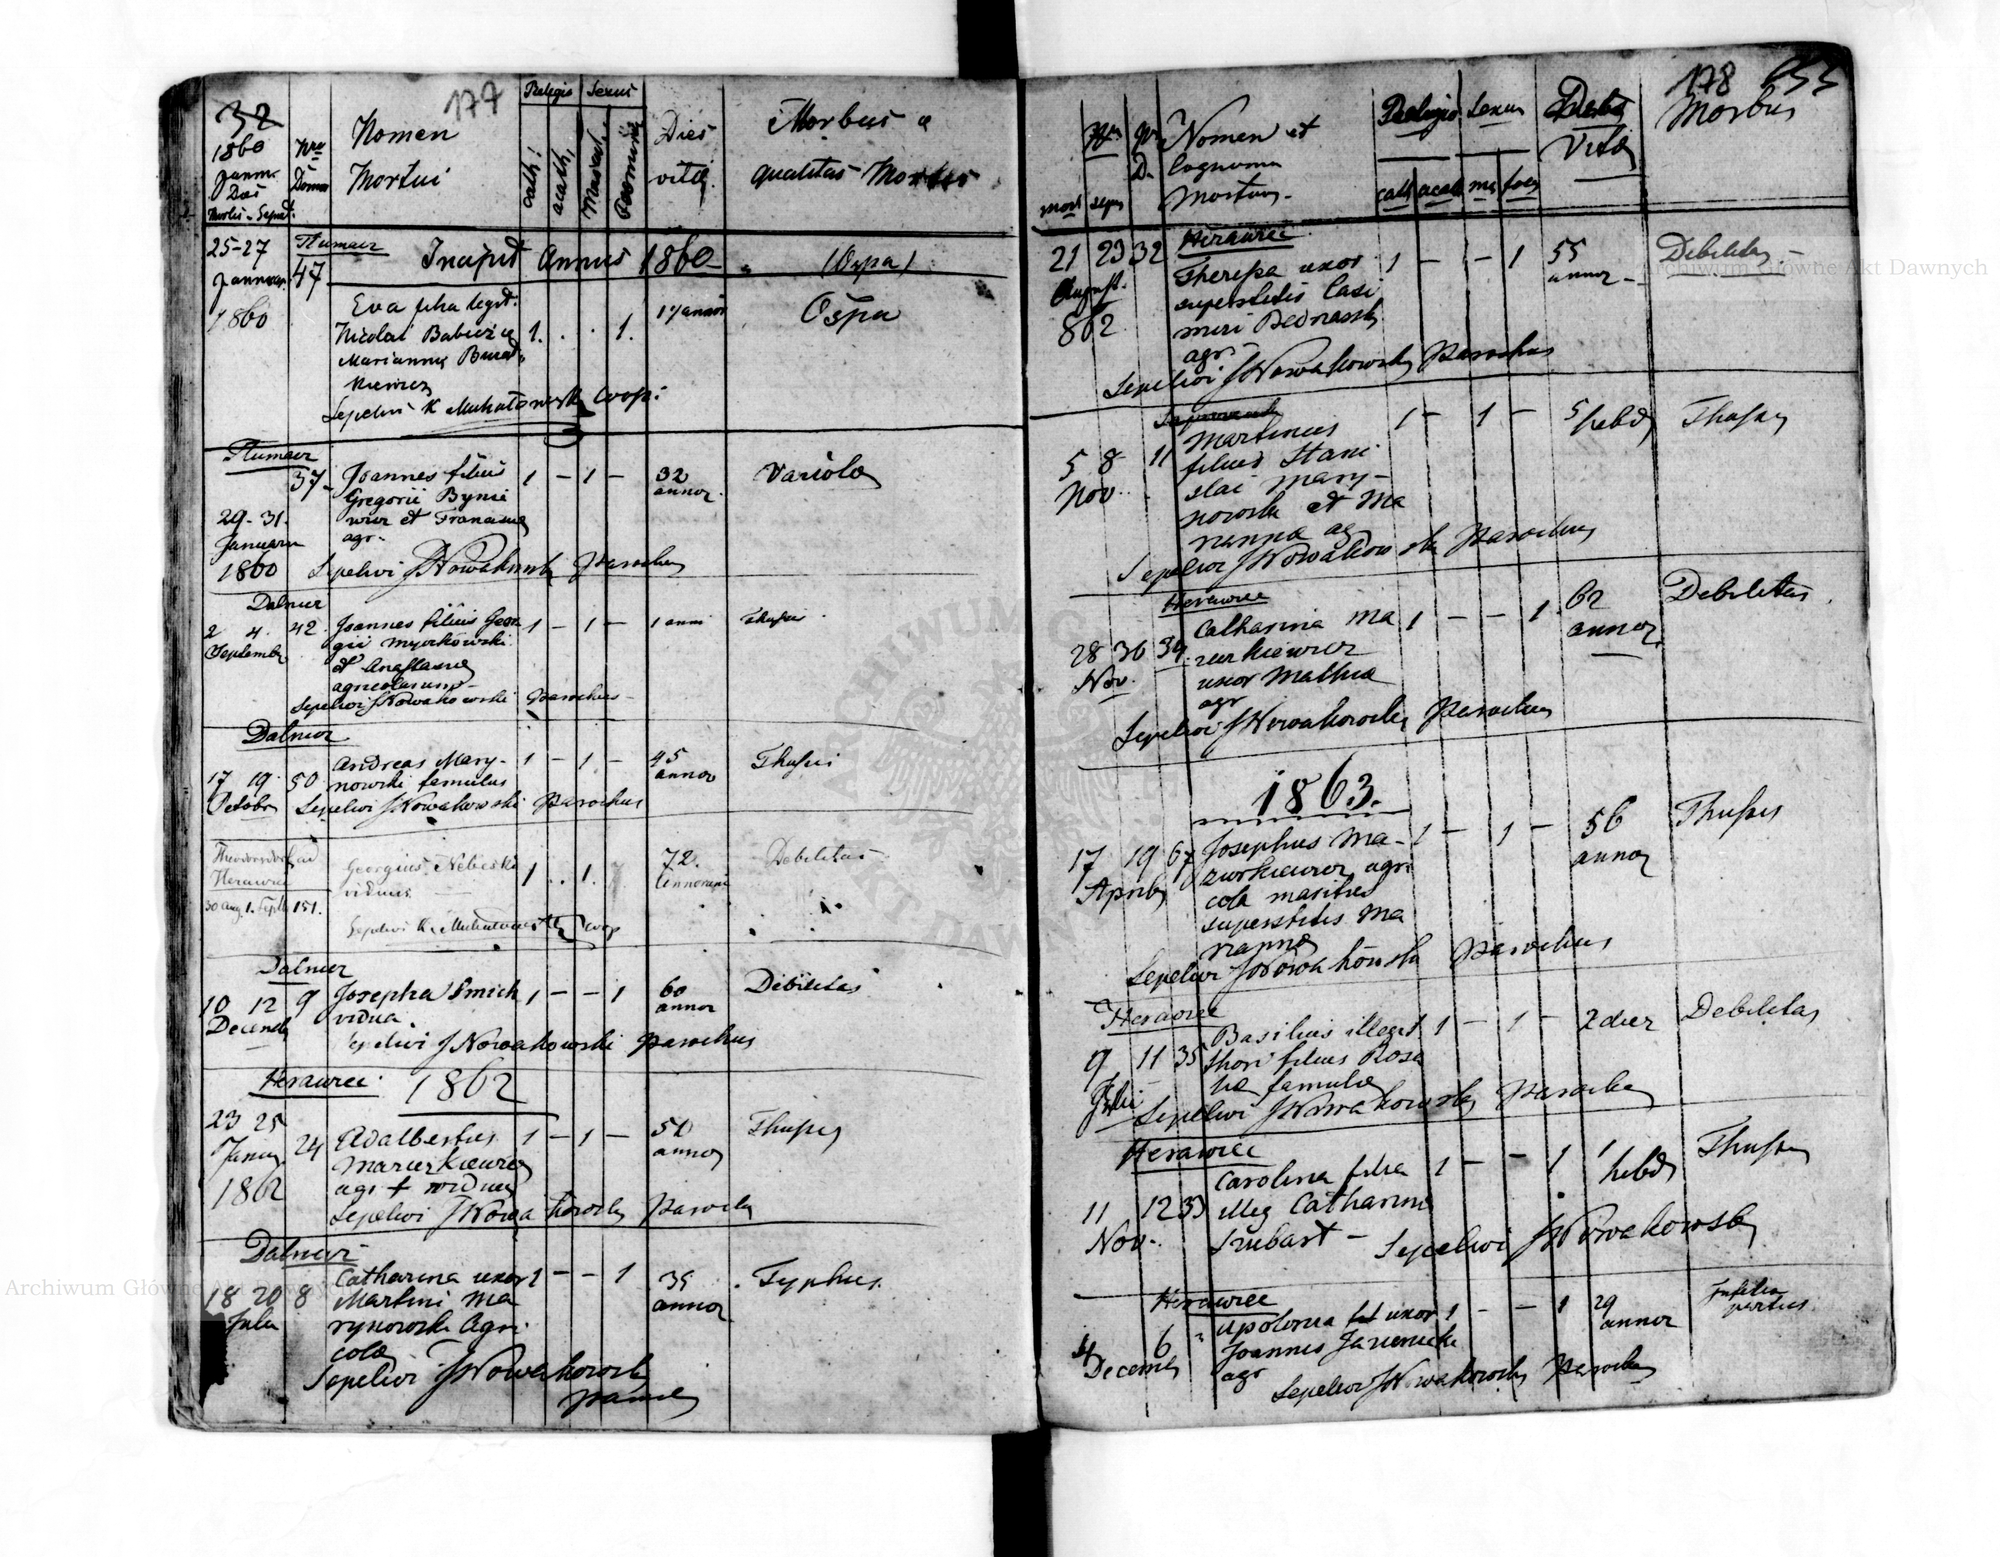 177
32
1860
Januar.
Dies
Mortis - Sepult.
Nro
Domus
Nomen
Mortui
Religio
cath.
acath.
Sexus
Mascul.
Foeminin
Dies
vitæ
Morbus a
qualitas Mortis
25-27
Januar.
1860
Tłumacz
47
Incipit Annus 1860 (Ospa)
Eva filia legit.
Nicolai Babicz et
Mariannæ
1 . . 1.
17 annor
Ospa
Sepelivi K Muhatowski Coop.
Tłumacz
29-31.
Januarii
1860
37
Joannes filius
Gregorii
et Franciscæ
agr.
1 - 1 -
32
annor.
Variola
Sepelivi J Nowakowski Parochus
Dalmier
2 4. 42.
Septembr
Joannes filius Geor
gii Myrkowski
et Anastasiæ
agricolarum
1 - 1 -
1 anni
Thusis
Sepelivi J Nowakowski Parochus
Dalmier
17 19 50
Octobr
Andreas Mary-
nowski famulus
1 - 1 -
45
annor
Thusis
Sepelivi J Nowakowski Parochus
Theodorsdorf ad
Herawiec
30 Aug. 1. Septb 151.
Georgius Nebeski
viduus
1 .. 1.
72.
annorum
Debilitas
Sepelivi K. Muhatowski Coop
Dalmier
10 12 9
Decemb
Josepha Smich
vidua
1 - - 1
60
annor
Debilitas
Sepelivi J Nowakowski Parochus
Herawiec 1862
23 25
Januar. 24
1862
Adalbertus
Mazurkiewicz
agr + viduus
1 - 1 -
annor
Thusis
Sepelivi J Nowakowski Parochus
Dalmier
18 20 8
Julii
Catharina uxor
Martini Ma
rynowski Agri
colæ
1 - - 1
39
annor
Typhus.
Sepelivi J Nowakowski
Parochus
178
Nr
D.
mort sepu
Nomen et
Cognomen
Mortuor
Religio
cath acat
Sexus
ma foe
Dies
Vitæ
Morbus
21 23 32
August.
862
Herawiec
Theresa uxor
superstitis Casi
miri Bednarski
agr
1 - - 1
55
annor
Debilitas
Sepelivi J Nowakowski Parochus
5 8 11
Nov.
Martinus
filius Stani
slai Mary-
nowski et Ma
rianna ag
1 - 1 -
5 hebd
Thusis
Sepelivi J Nowakowski Parochus
Herawiec
28 30 39
Nov.
Catharina Ma
zurkiewicz
uxor Mathiæ
agr
1 - - 1
62
annor
Debilitas
Sepelivi J Nowakowski Parochus
1863.
17 19 67
Aprilis
Josephus Ma-
zurkiewicz agri
cola maritus
superstitis Ma
riannæ
1 - 1 -
56
annor
Thusis
Sepelivi J Nowakowski Parochus
Herawiec
9 11 35
Julii
Basilius illegit.
thori filius Rosa
liæ famulæ
1 - 1 -
2 dier
Debilitas
Sepelivi J Nowakowski Parochus
Herawiec
11 12 33
Nov.
Carolina filia
illeg Catharinæ
Szubart
1 - - 1
1
hebd
Thusis
Sepelivi J Nowakowski
Herawiec
4 6
Decemb
Apolonia uxor
Joannis
agr
1 - - 1
29
annor
partus.
Sepelivi J Nowakowski Parochus
Archiwum Główne Akt Dawnych
Archiwum Główne Akt Dawnych